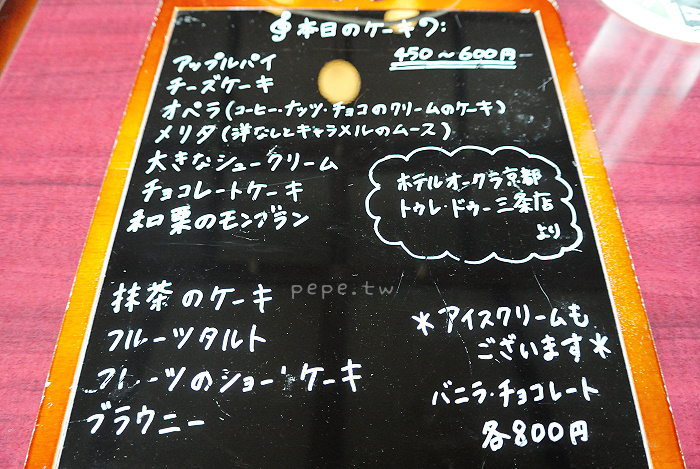 本日のケーキ
450〜600円
アップルパイ
チーズケーキ
オペラ(コーヒー・ナッツ・チョコのクリームのケーキ)
メリタ(洋なしとキャラメルのムース)
大きなシュークリーム
チョコレートケーキ
和栗のモンブラン
ホテルオークラ京都
トゥレ・ドゥー三条店
より
抹茶のケーキ
フルーツタルト
フルーツのショートケーキ
ブラウニー
*アイスクリームも
ございます*
バニラ・チョコレート
各800円
pepe.tw